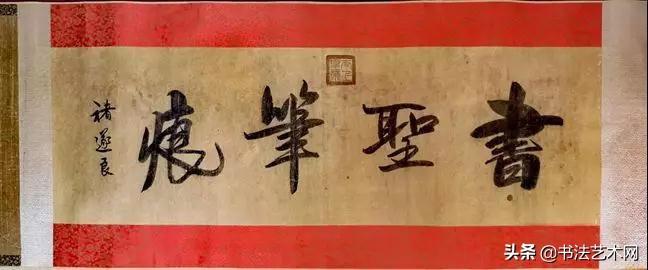 書聖筆痕
褚遂良
头条 @书法艺术网